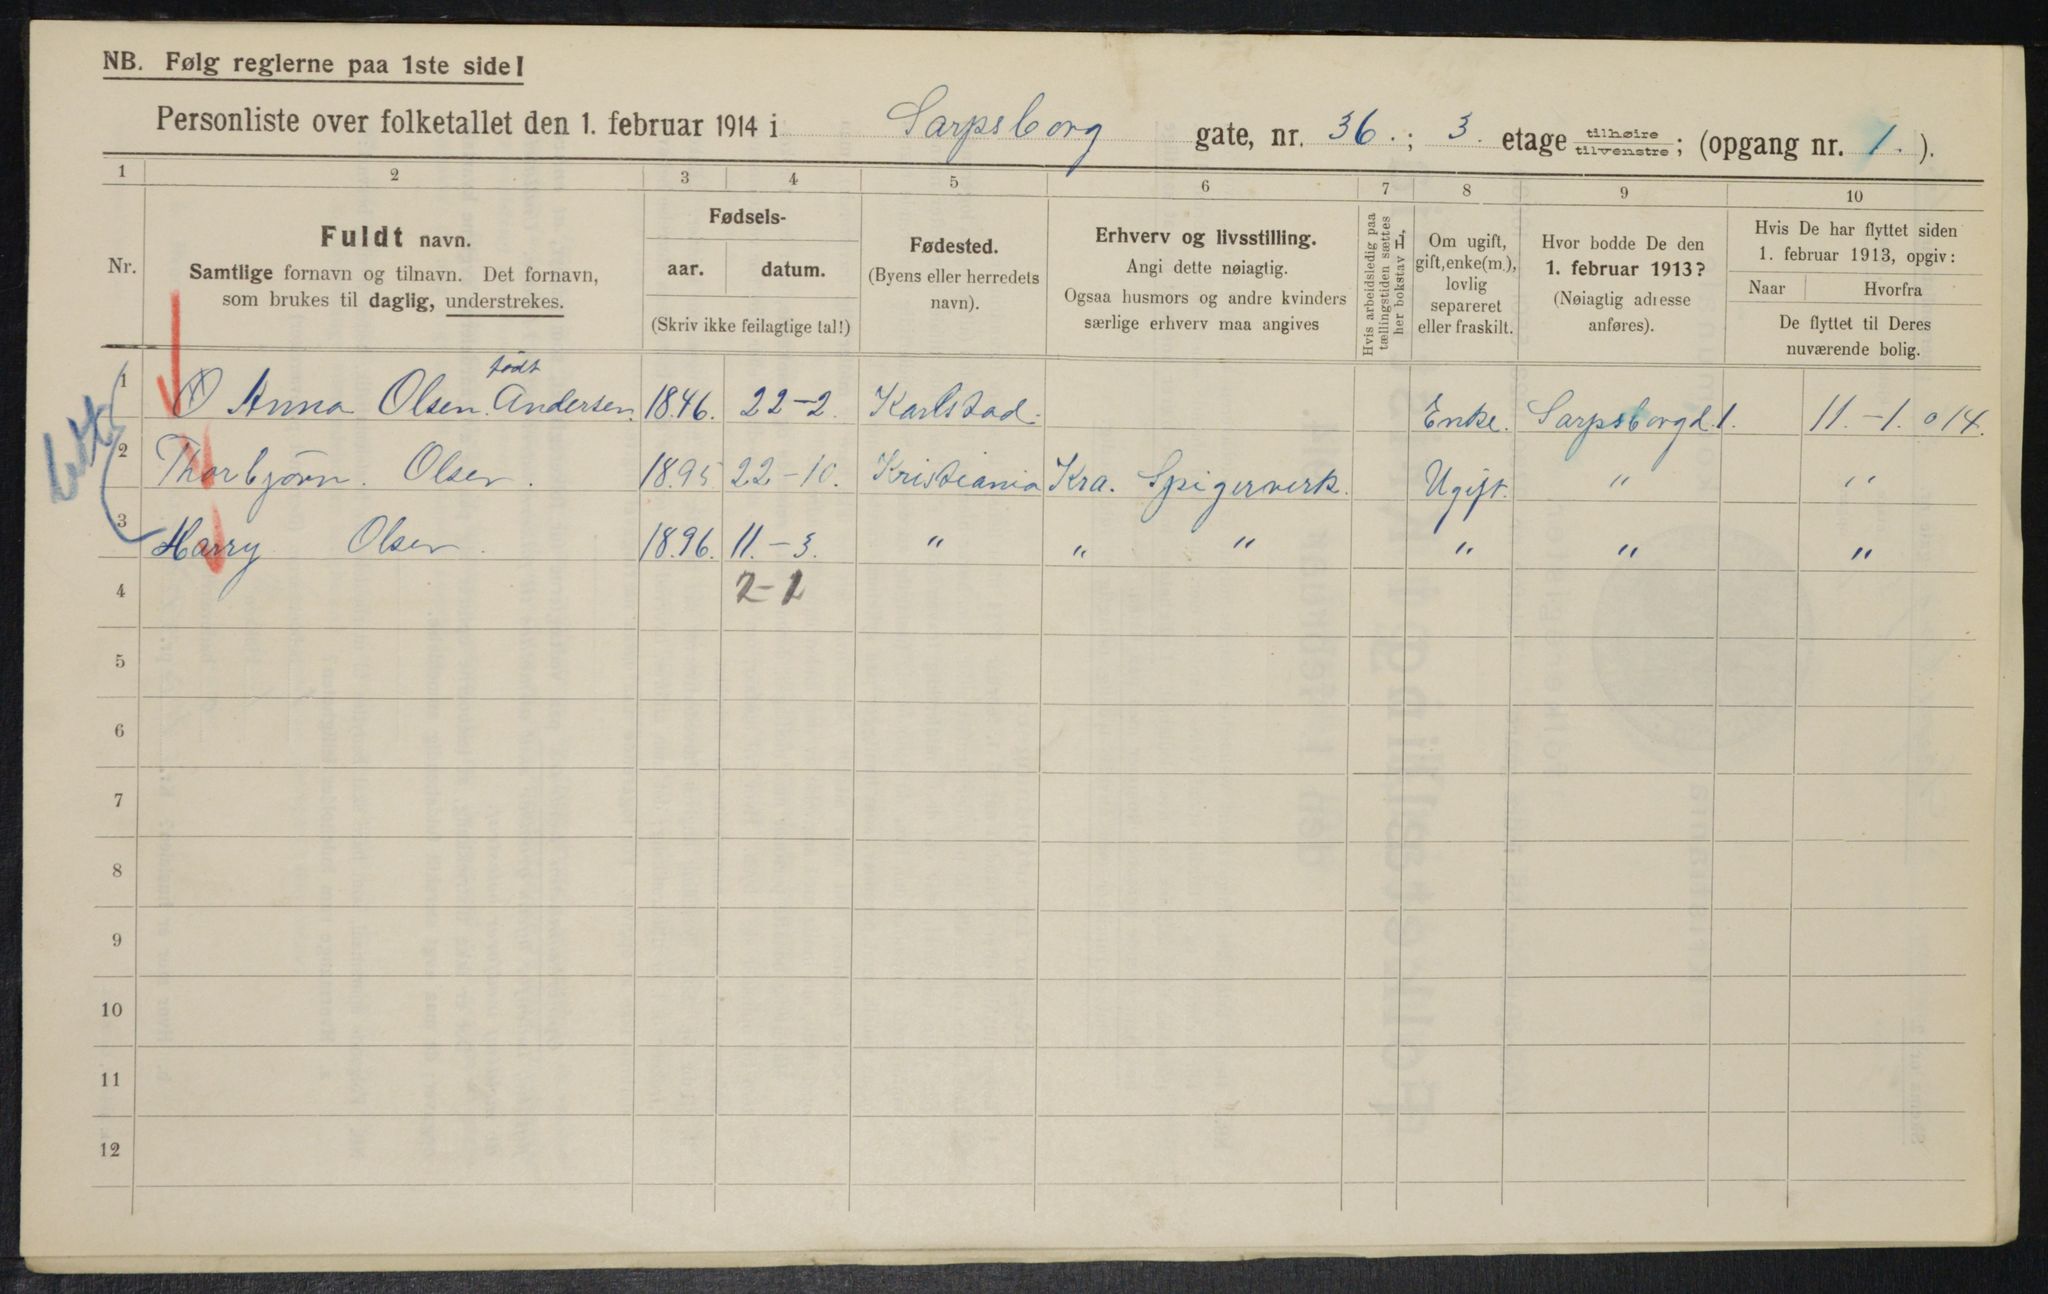 NB. Følg reglerne paa 1ste side!
Personliste over folketallet den 1. februar 1914 i Sarpsborg gate, nr. 36.; 3. etage tilhøire tilvenstre; (opgang nr. 1.).
1 2 3 4 5 6 7 8 9 10
Nr.
Fuldt navn.
Samtlige fornavn og tilnavn. Det fornavn,
som brukes til daglig, understrekes.
Fødsels-
aar. datum.
(Skriv ikke feilagtige tal!)
Fødested.
(Byens eller herredets
navn).
Erhverv og livsstilling.
Angi dette nøiagtig.
Ogsaa husmors og andre kvinders
særlige erhverv maa angives
Hvis arbeidsledig paa
tællingstiden sættes
her bokstav L.
Om ugift,
gift, enke(m.),
lovlig
separeret
eller fraskilt.
Hvor bodde De den
1. februar 1913?
(Nøiagtig adresse
anføres).
Hvis De har flyttet siden
1. februar 1913, opgiv:
Naar Hvorfra
De flyttet til Deres
nuværende bolig.
født
1 Anna Olsen. Andersen. 1846. 22-2. Karlstad. Enke. Sarpsborgd. 1. 11.-1. 014.
2 Thorbjörn. Olsen. 1895 22-10. Kristiania Kra. Spigerverk. Ugift. " "
3 Harry Olsen. 1896. 11.-3. " " " " " "
4 2-1
5
6
7
8
9
10
11
12